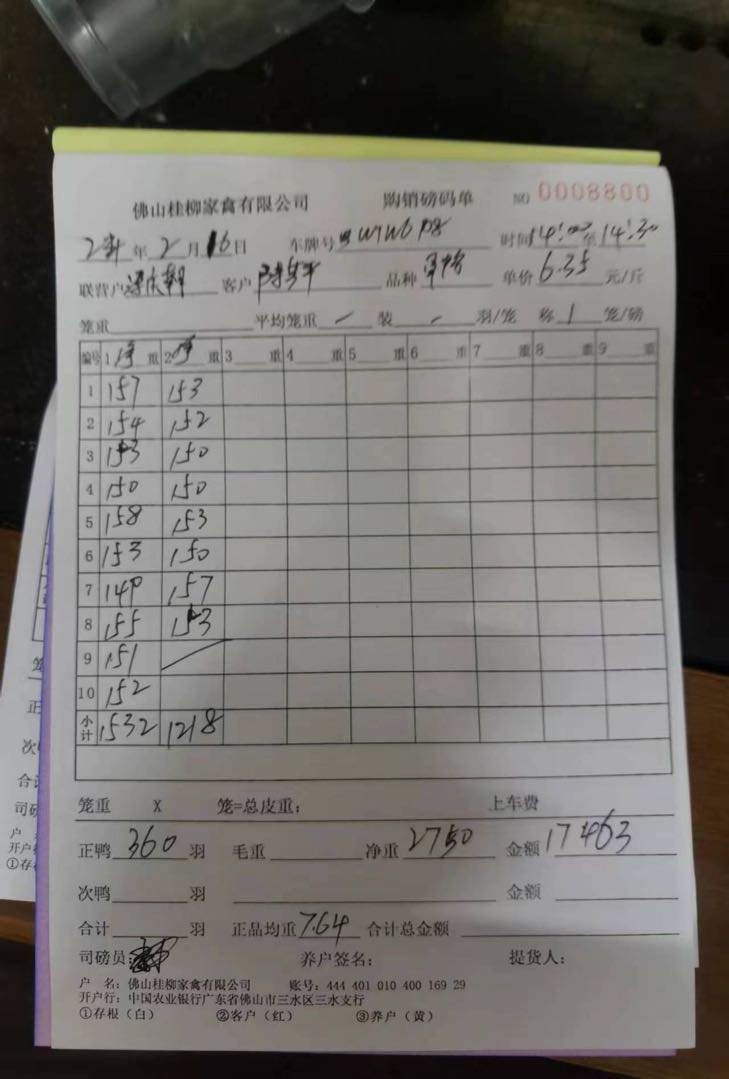 佛山桂柳家禽有限公司 购销磅码单 NO 0008800
年 2 月 16 日 车牌号 时间 14:00 至 14:30
联营户 客户 品种 单价 6.35 元/斤
笼重 平均笼重 — 装 - 羽/笼 称 1 笼/磅
编号 1 净 重 2 净 重 3 重 4 重 5 重 6 重 7 重 8 重 9 重
1 157 153
2 154 152
3 153 150
4 150 150
5 158 153
6 153 150
7 149 157
8 155 153
9 151
10 152
小计 1532 1218
笼重 X 笼=总皮重: 上车费
正鸭 360 羽 毛重 净重 2750 金额 17463
次鸭 羽 金额
合计 羽 正品均重 7.64 合计总金额
司磅员: 养户签名: 提货人:
户 名: 佛山桂柳家禽有限公司 账号: 444 401 010 400 169 29
开户行: 中国农业银行广东省佛山市三水区三水支行
①存根（白） ②客户（红） ③养户（黄）